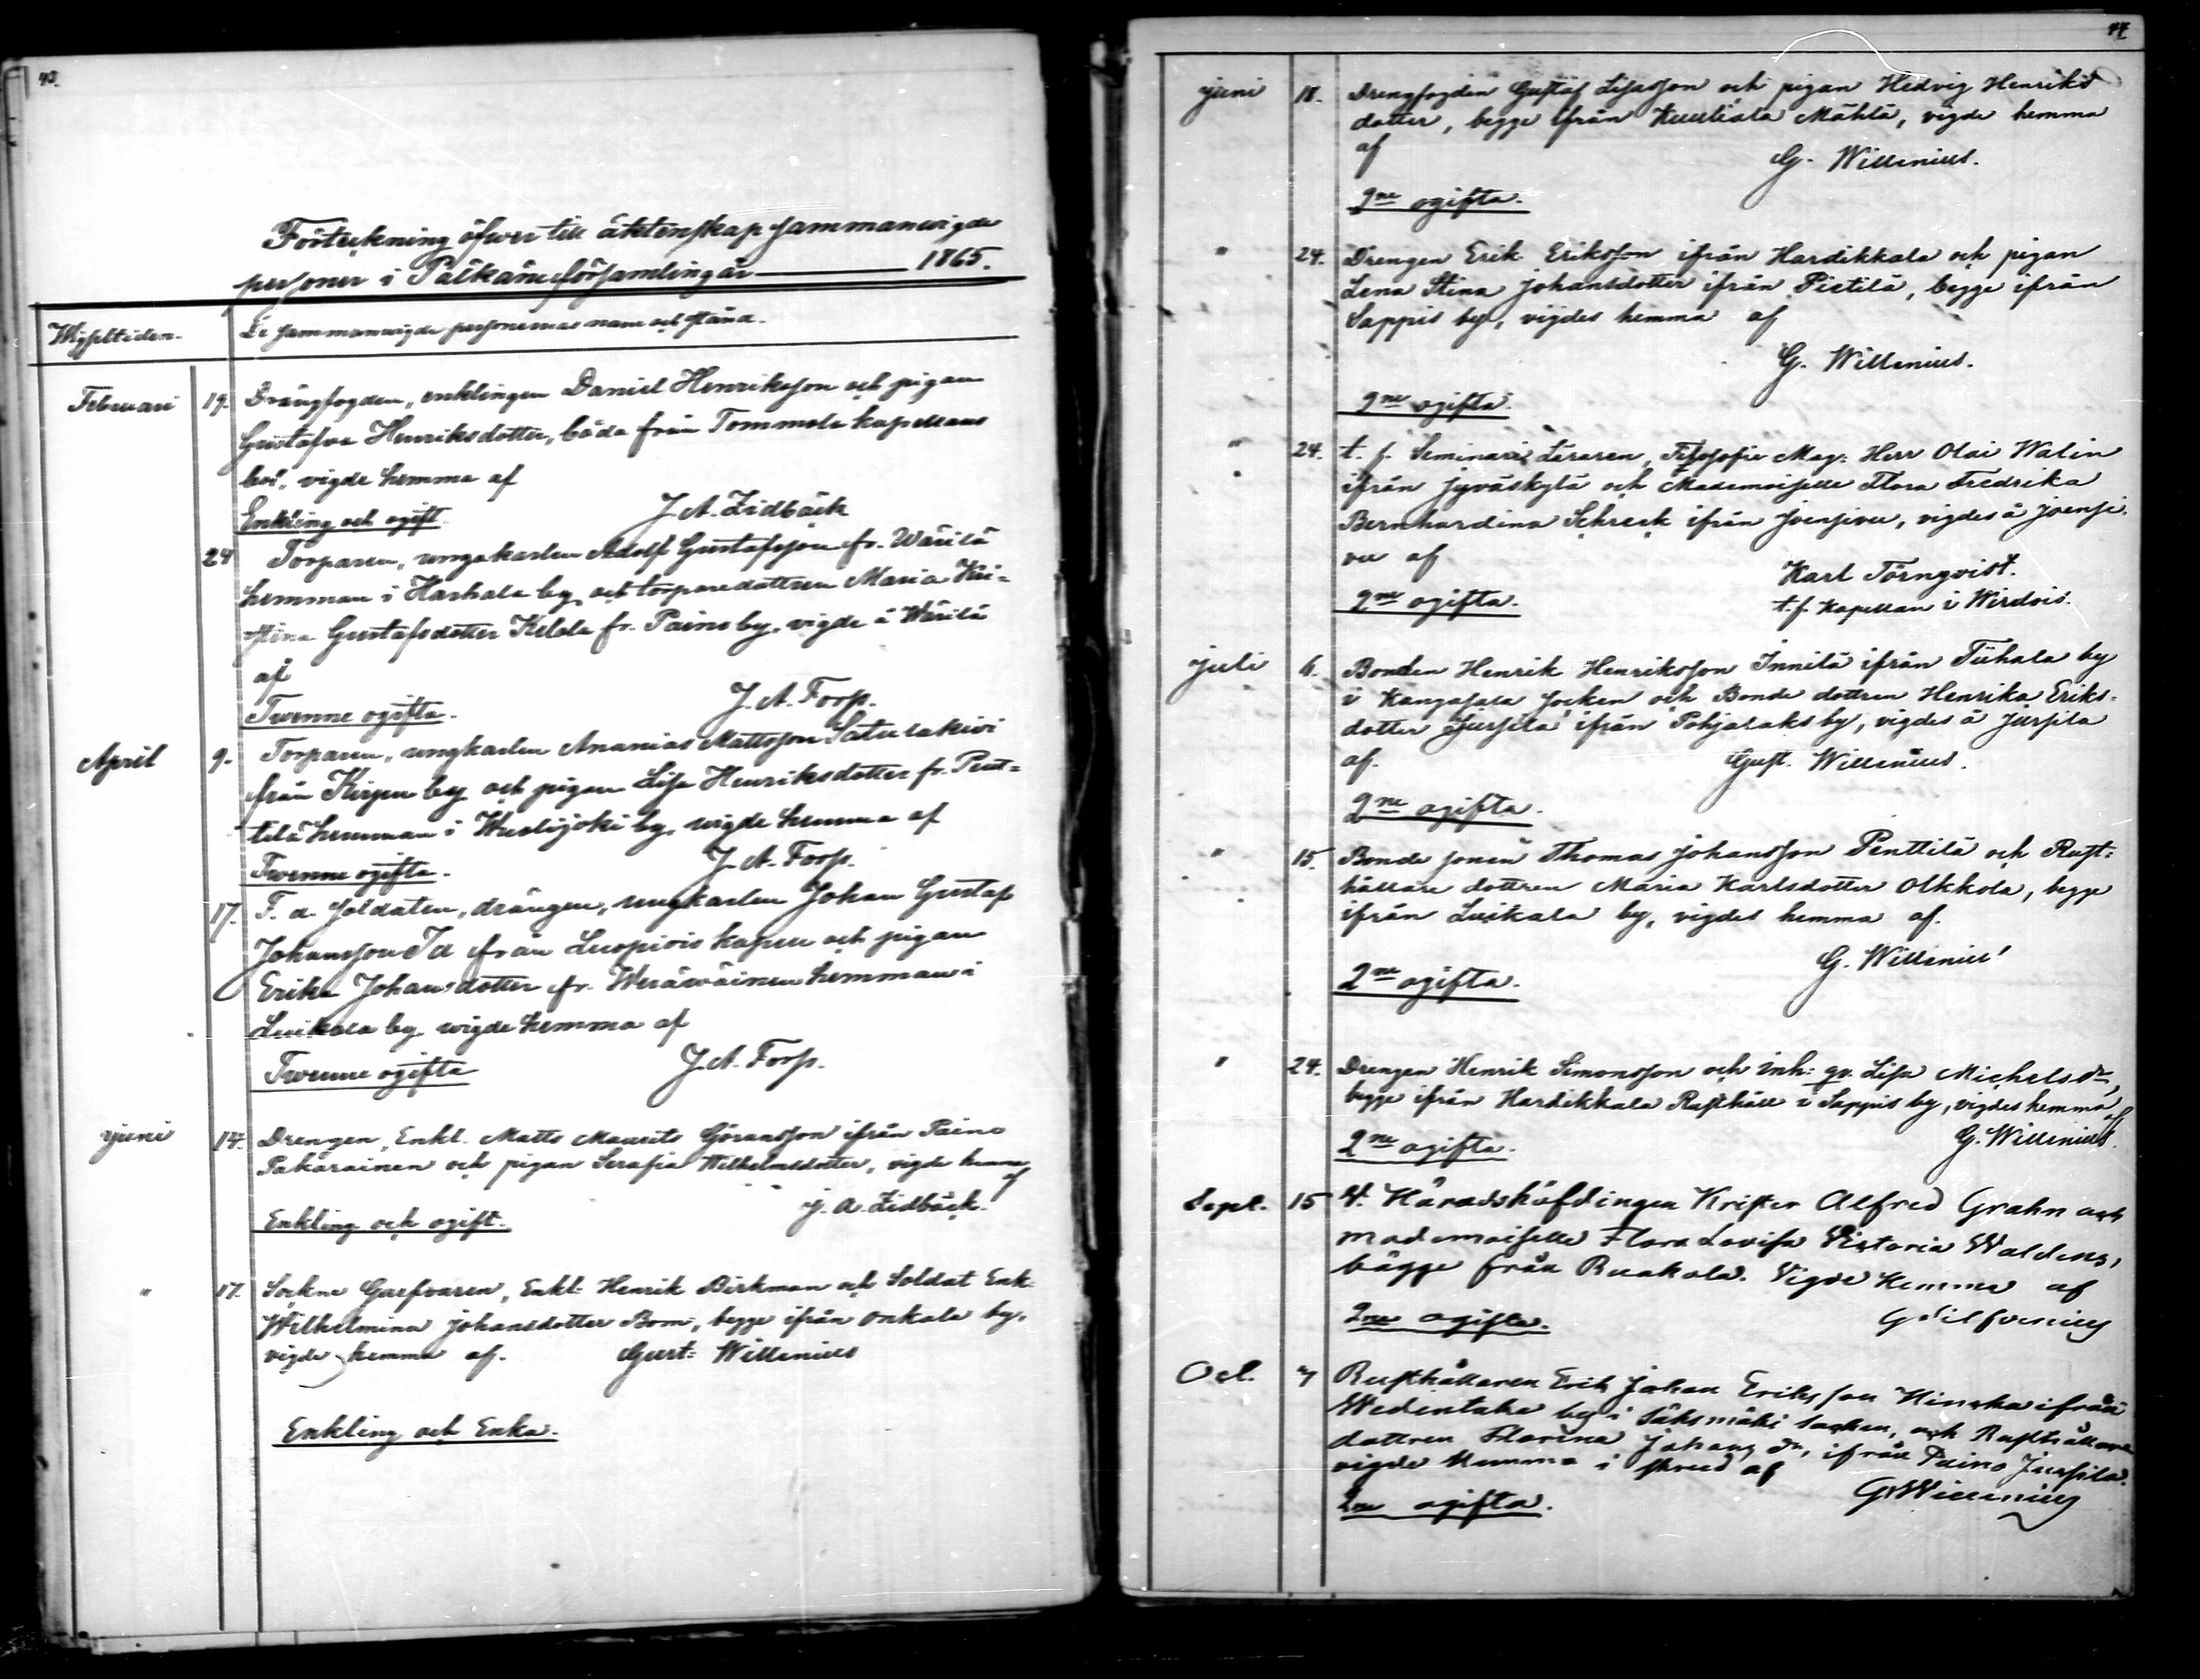 43.
Förteckning öfwer till äktenskap sammanwigde
personer i Pälkäne församling år 1865.
Wigseltiden.
De sammanwigde personernas namn och stånd.
Februari 19. Drängfogden, enklingen Daniel Henriksson och pigan
Gustafva Henriksdotter, båda från Tommola kapellans
bol, vigde hemma af
Enkling och ogift. J. A. Lidbäck
24 Torparen, ungkarlen Adolf Gustafsson fr. Wärilä
hemman i Harhala by och torparedottren Maria Kri-
stina Gustafsdotter Kelola fr. Paino by, vigde å Wärilä
af
Twenne ogifta. J. A. Forss.
April 9. Torparen, ungkarlen Ananias Mattsson Satulakivi
från Kirpu by och pigan Lisa Henriksdotter fr. Pent-
tilä hemman i Wuolijoki by, wigde hemma af
Twenne ogifta. J. A. Forss.
17. F. d. Soldaten, drängen, ungkarlen Johan Gustaf
Johansson Id från Luopiois kapell och pigan
Erika Johansdotter fr. Weräwäinen hemman i
Luikala by, wigde hemma af
Twenne ogifta J. A. Forss.
juni 14. Drengen, Enkl. Matts Maurits Göransson ifrån Paino
Pakarainen och pigan Serafia Wilhelmsdotter, vigde hemma
af
Enkling och ogift. J. A. Lidbäck.
" 17. Sockne Garfvaren, Enkl: Henrik Birkman och Soldat Enk:
Wilhelmina Johansdotter Bom, begge ifrån Onkala by,
vigde hemma af. Gust: Willenius
Enkling och Enka.
44
juni 18. Drengfogden Gustaf Lisasson och pigan Hedvig Henriks
dotter, begge ifrån Kuuliala Mähla, vigde hemma
af
G. Willenius.
2ne ogifta.
" 24. Drengen Erik Eriksson ifrån Hardikkala och pigan
Lena Stina Johansdotter ifrån Pietilä, begge ifrån
Sappis by, vigdes hemma af
G. Willenius.
2ne ogifta.
" 24. t. f. Seminarie Läraren, Filosofie Mag: Herr Olai Walin
ifrån Jyväskylä och Mademoiselle Flora Fredrika
Bernhardina Schreck ifrån Joensivu, vigdes å Joensi-
vu af
Karl Törnqvist.
2ne ogifta. t.f. Kapellan i Wirdois.
juli 6. Bonden Henrik Henriksson Innilä ifrån Tiihala by
i Kangasala Socken och Bonde dottren Henrika Eriks-
dotter Jussila ifrån Pohjalaks by, vigdes å Jussila
af. Gust. Willenius.
2ne ogifta.
" 15. Bonde sonen Thomas Johansson Penttilä och Rust-
hållare dottren Maria Karlsdotter Olkkola, begge
ifrån Luikala by, vigdes hemma af.
G. Willenius
2ne ogifta.
" 24. Drengen Henrik Simonsson och inh: qv. Lisa Michelsdr,
begge ifrån Hardikkala Rusthåll i Sappis by, vigdes hemma
af
2ne ogifta. G. Willenius.
Sept. 15 V. Häradshöfdingen Krister Alfred Grahn och
mademoiselle Flora Lovisa Victoria Waldens,
bägge från Ruokola. Vigde hemma af
2ne ogifta. G Silfvenius
Oct. 7 Rusthållaren Erik Johan Eriksson Hinsha ifrån
Wedentaka by i Sääksmäki Socken, och Rusthållare
dottren Florina Johansdr, ifrån Paino Jussila.
vigde hemma i skrud af
2ne ogifta. G Willenius